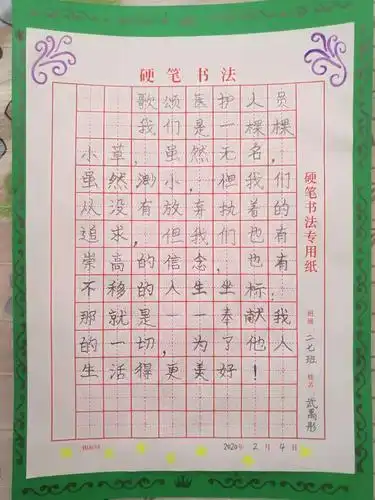 硬笔书法
歌颂医护人员
我们是一棵棵
小草，虽然无名，
虽然渺小，但我们
从没有放弃执着的
追求，但我们也有
崇高的信念，也有
不移的人生坐标，
那就是一一奉献我
的一切，为了他人
生活得更美好！
硬笔书法专用纸
班级 二七班 姓名 武禹彤
2020年 2 月 4 日